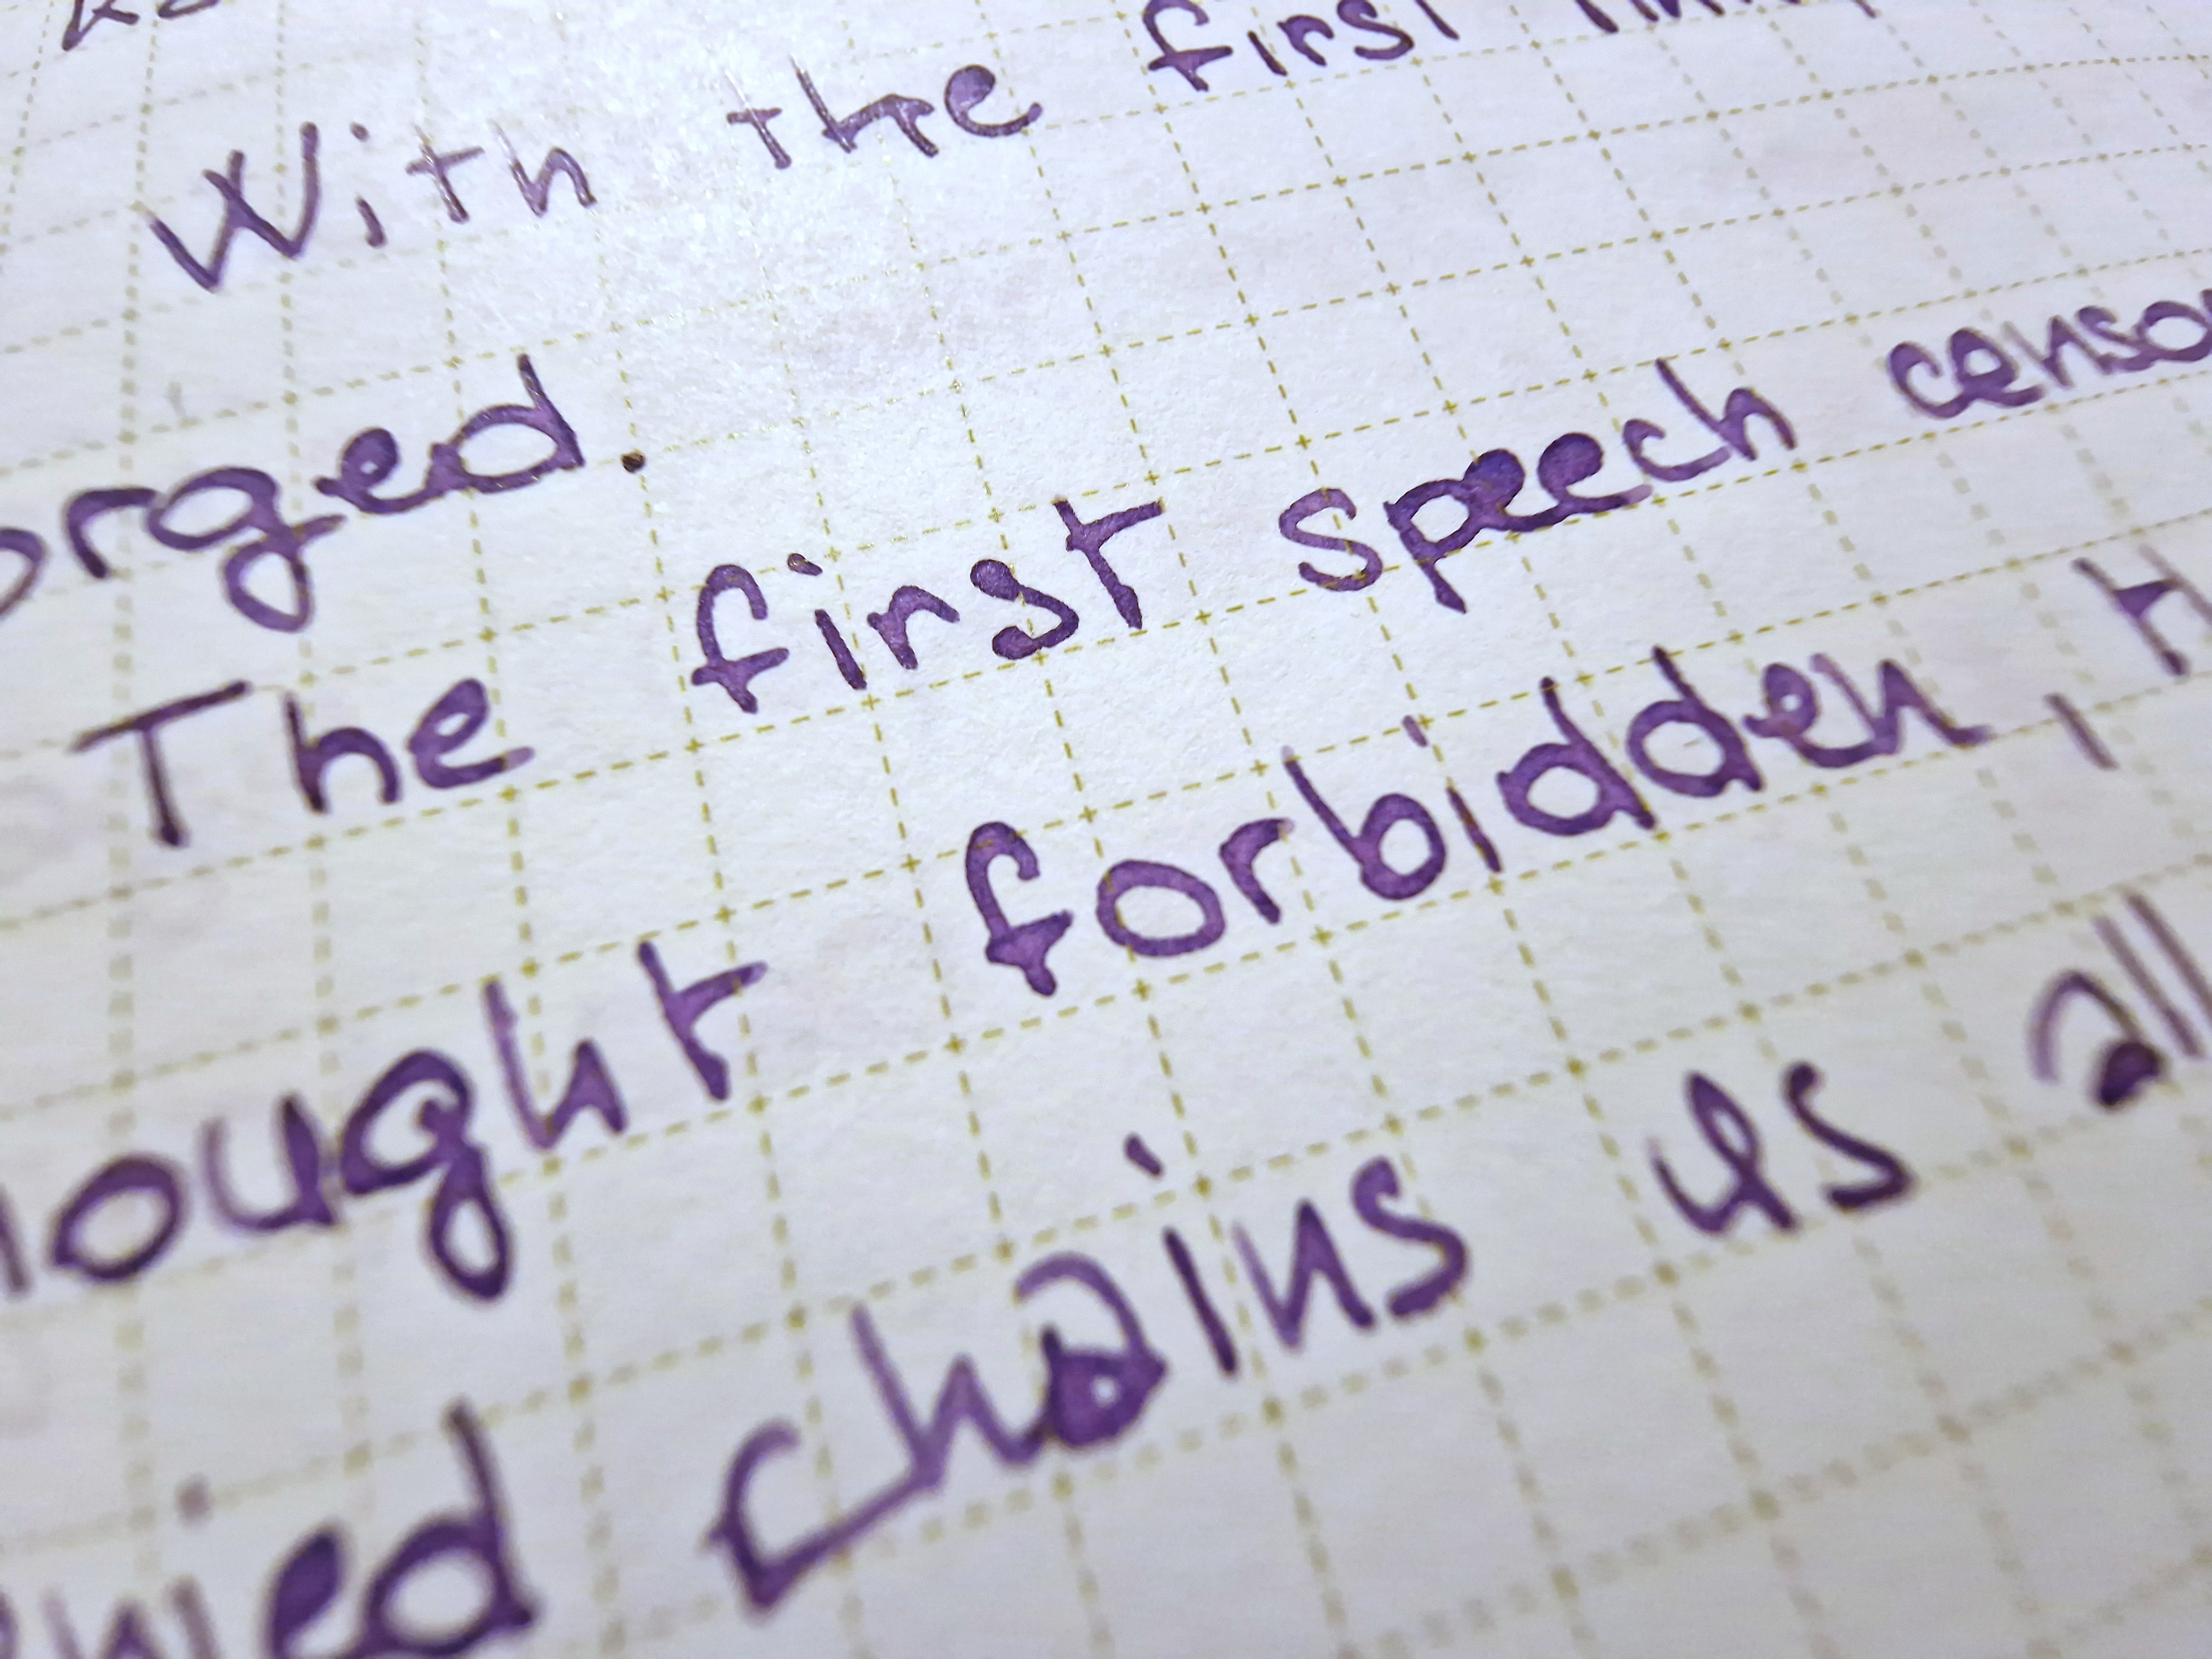 With the first
orged.
The first speech censo
ought forbidden,
enied chains us all